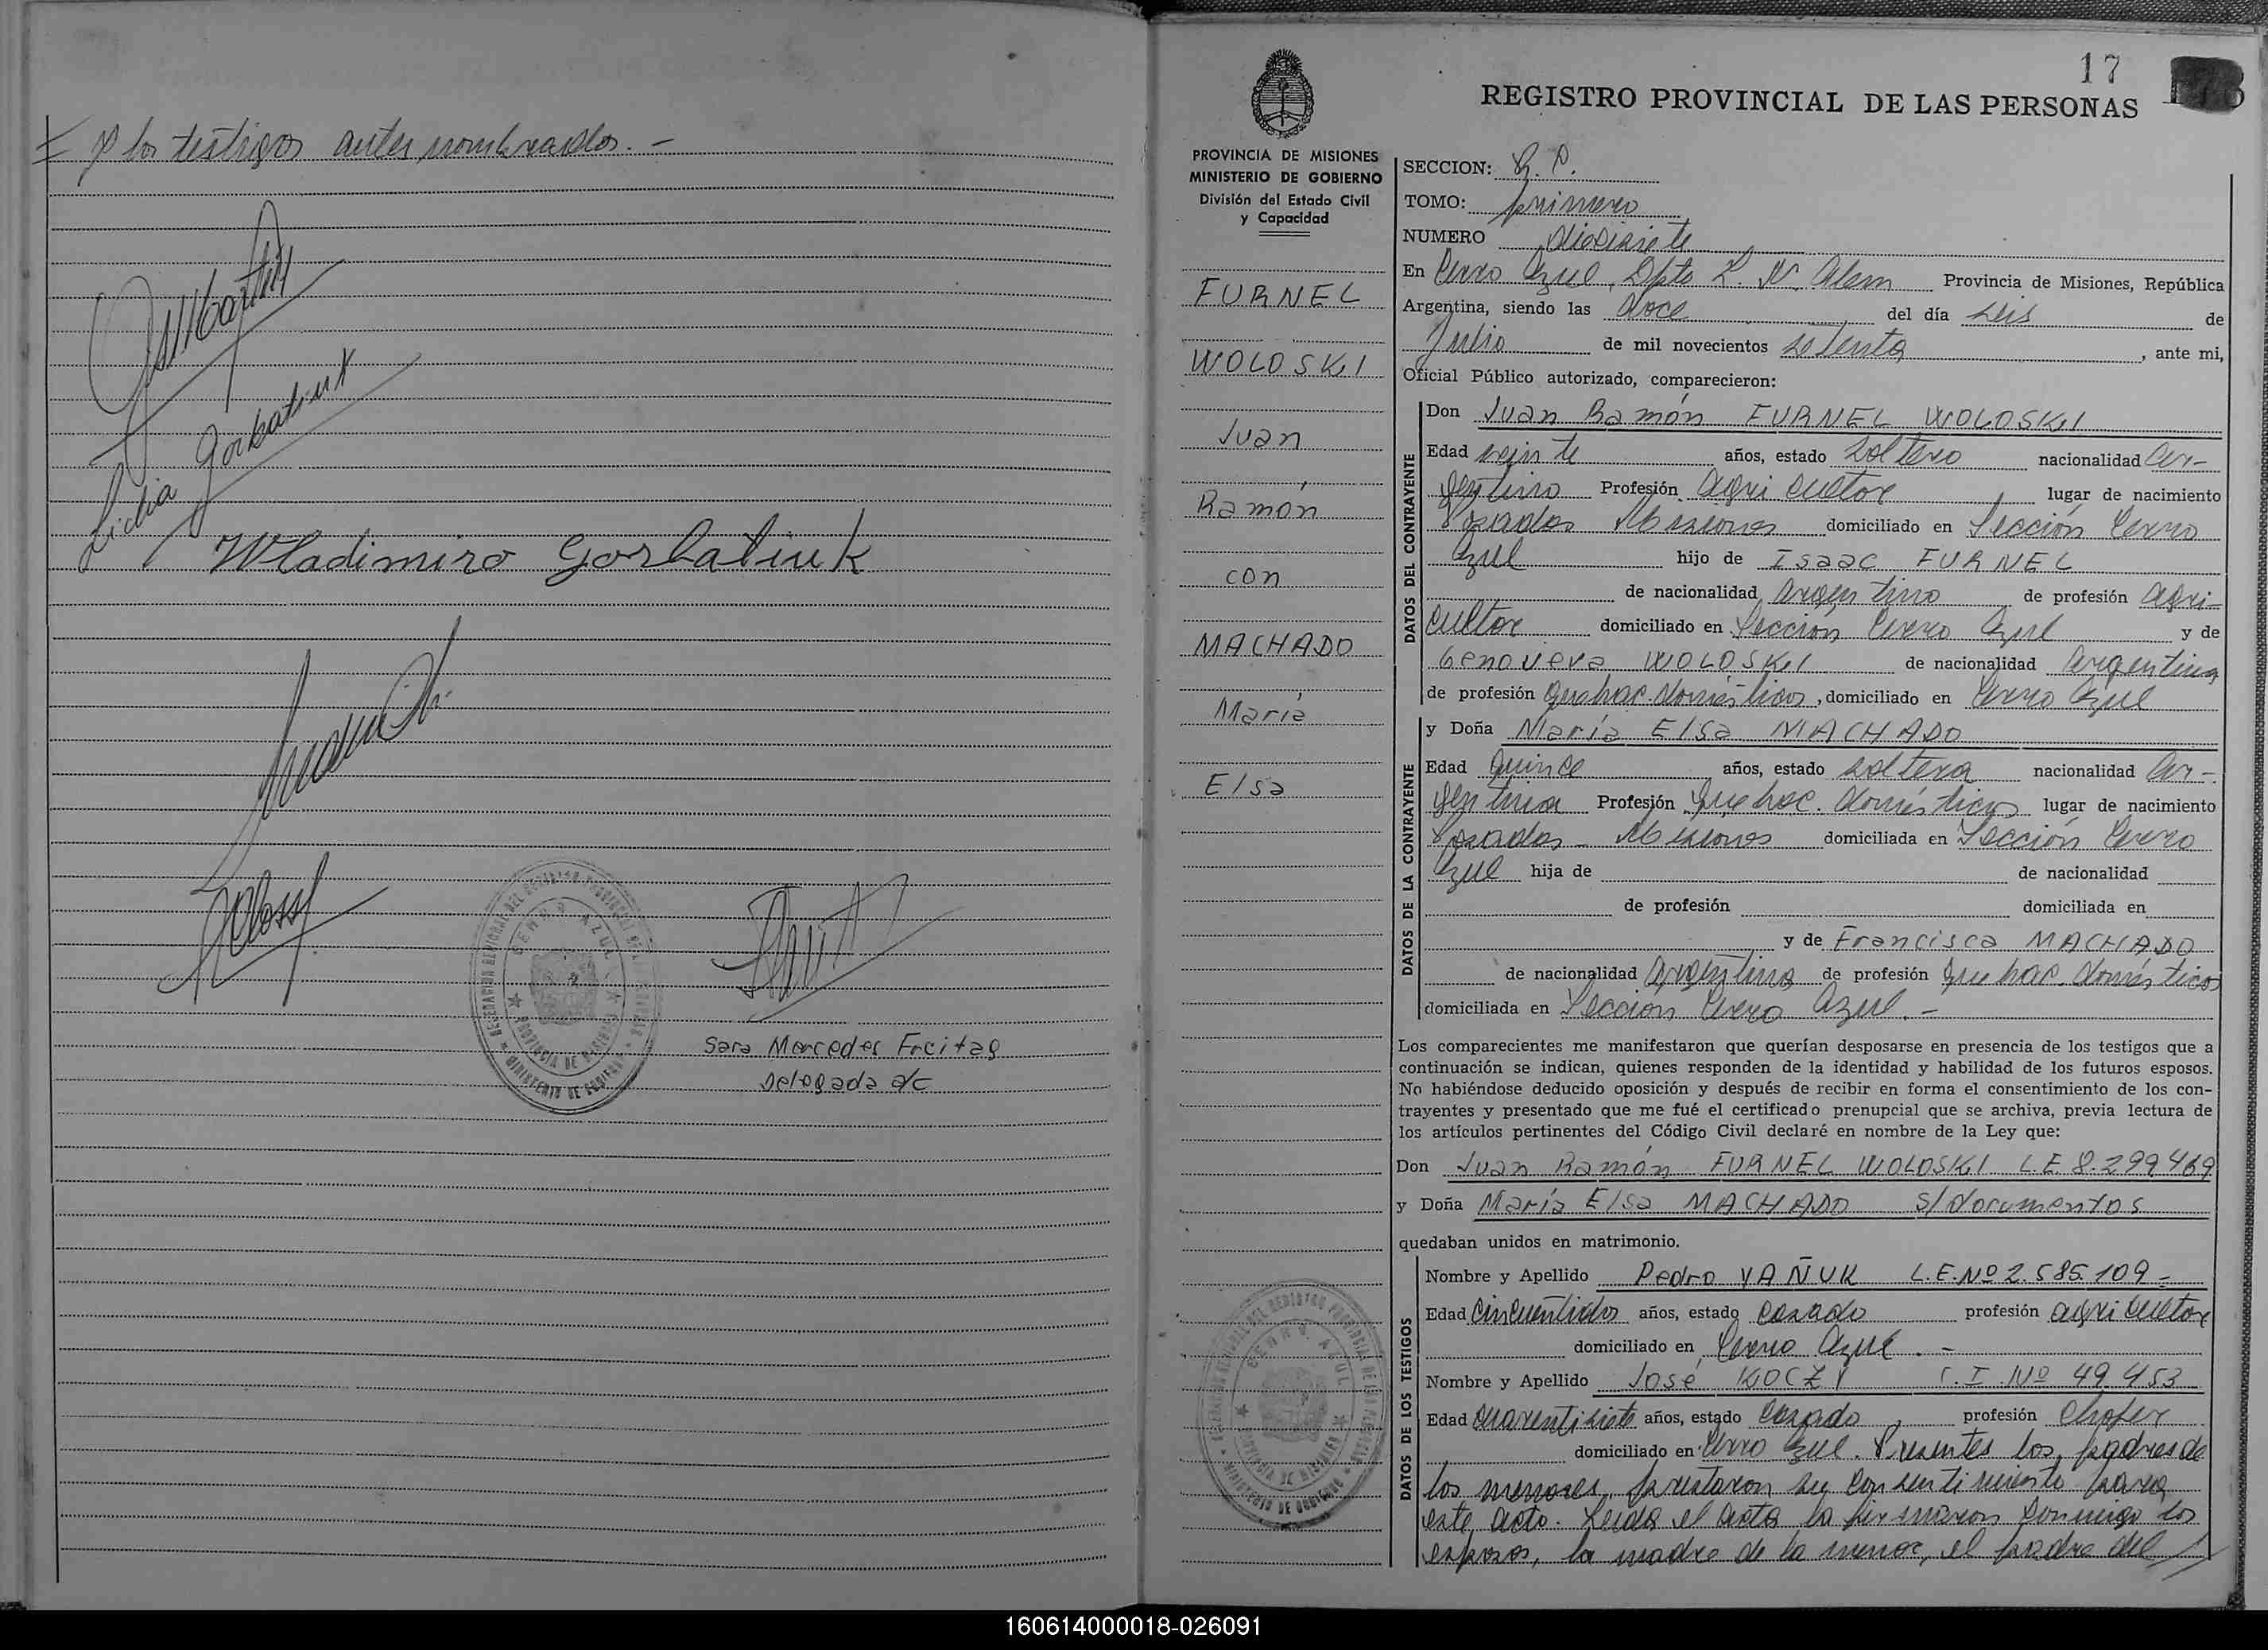 = y los testigos antes nombrados. -
Lidia Gorbatiuk
Wladimiro Gorbatiuk
CERRO AZUL
PROVINCIA DE MISIONES
MINISTERIO DE GOBIERNO
Sara Mercedes Freitag
Delegada a/c
17
REGISTRO PROVINCIAL DE LAS PERSONAS
PROVINCIA DE MISIONES
MINISTERIO DE GOBIERNO
División del Estado Civil
y Capacidad
FURNEL
WOLOSKI
Juan
Ramón
con
MACHADO
María
Elsa
CERRO AZUL
PROVINCIA DE MISIONES
MINISTERIO DE GOBIERNO
SECCION:
TOMO: primero
NUMERO diecisiete
En Cerro Azul, Dpto L. N. Alem Provincia de Misiones, República
Argentina, siendo las doce del día seis de
Julio de mil novecientos setenta, ante mi,
Oficial Público autorizado, comparecieron:
DATOS DEL CONTRAYENTE
Don Juan Ramón FURNEL WOLOSKI
Edad veinte años, estado soltero nacionalidad Ar-
gentino Profesión agricultor, lugar de nacimiento
Posadas Misiones domiciliado en Sección Cerro
Azul hijo de Isaac FURNEL
de nacionalidad argentino de profesión agri-
cultor domiciliado en Sección Cerro Azul y de
Genoveva WOLOSKI de nacionalidad argentina
de profesión quehac. domésticos, domiciliado en Cerro Azul
DATOS DE LA CONTRAYENTE
y Doña María Elsa MACHADO
Edad quince años, estado soltera nacionalidad Ar-
gentina Profesión quehac. domésticos lugar de nacimiento
Posadas - Misiones domiciliada en Sección Cerro
Azul hija de de nacionalidad
de profesión domiciliada en
y de Francisca MACHADO
de nacionalidad argentina de profesión quehac. domésticos
domiciliada en Sección Cerro Azul. -
Los comparecientes me manifestaron que querían desposarse en presencia de los testigos que a
continuación se indican, quienes responden de la identidad y habilidad de los futuros esposos.
No habiéndose deducido oposición y después de recibir en forma el consentimiento de los con-
trayentes y presentado que me fué el certificado prenupcial que se archiva, previa lectura de
los artículos pertinentes del Código Civil declaré en nombre de la Ley que:
Don Juan Ramón FURNEL WOLOSKI L E 8.299469
y Doña María Elsa MACHADO s/documentos
quedaban unidos en matrimonio.
DATOS DE LOS TESTIGOS
Nombre y Apellido Pedro YAÑUK L.E.Nº 2.585.109 -
Edad cincuentidos años, estado casado profesión agricultor
domiciliado en Cerro Azul. -
Nombre y Apellido José KOCZY C.I Nº 49.453
Edad cuarentisiete años, estado casado, profesión chofer
domiciliado en Cerro Azul. Presentes los padres de
los menores, prestaron su consentimiento para
este acto. Leida el acta la firmaron conmigo los
esposos, la madre de la menor, el padre del
160614000018-026091